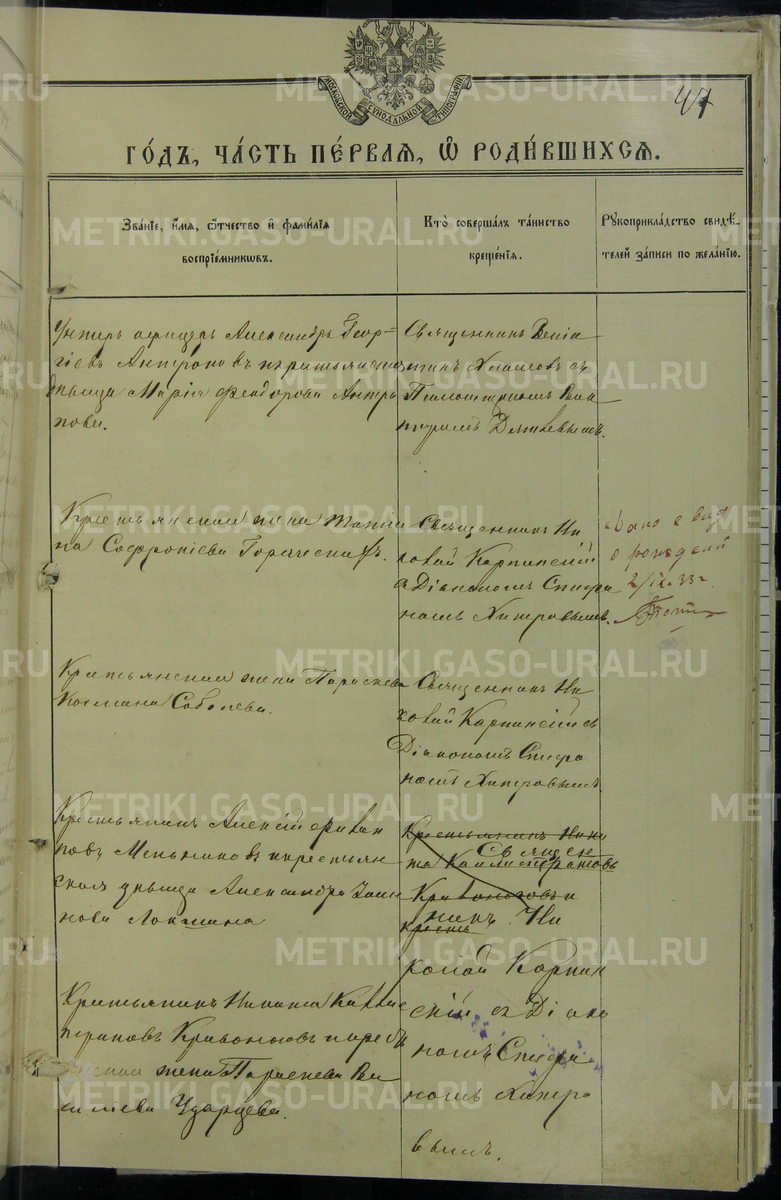 МОСКОВСКОЙ СУНОДАЛЬНОЙ ТИПОГРАФІИ
47
ГО́ДЪ, ЧА́СТЬ ПЕ́РВАЯ, Ѡ РОДИ́ВШИХСЯ.
Зва́нїе, и́мѧ, ѻ҆́тчество и҆ фами́лїѧ
воспрїе́мниковъ.
Кто̀ соверша́лъ та́инство
креще́нїѧ.
Рꙋкоприкла́дство свидѣ́-
телей за́писи по жела́нїю.
Унтеръ офицеръ Александръ Геор-
гіевъ Антроповъ и крестьянская
дѣвица Марія Феодорова Антро
пова.
Священникъ Веніа
минъ Хламовъ съ
Псаломщикомъ Вик
Крестьянская жена
на Софроніева
Священникъ Ни
колай Карпинскій
съ Діакономъ Спири
номъ Хитровымъ.
Дано с вид
о рождении
2/IX. 33 г.
Крестьянская жена Параскева
Космина Соболева.
Священникъ Ни
колай Карпинскій съ
Діакономъ Спири
номъ Хитровымъ.
Крестьянинъ Алексій
повъ Меньшиковъ и крестьян
ская дѣвица Александра
нова
Крестьянинъ Ники
Священ
та Каллистратовъ
Кривоноговъ и
никъ Ни
Кресть
колай Карпин
скій съ Діако
номъ Спири
номъ Хитро
вымъ.
Крестьянинъ Никита Каллис
тратовъ Кривоноговъ и кресть
янская жена Параскева Ва
силіева Ударцева.
METRIKI.GASO-URAL.RU